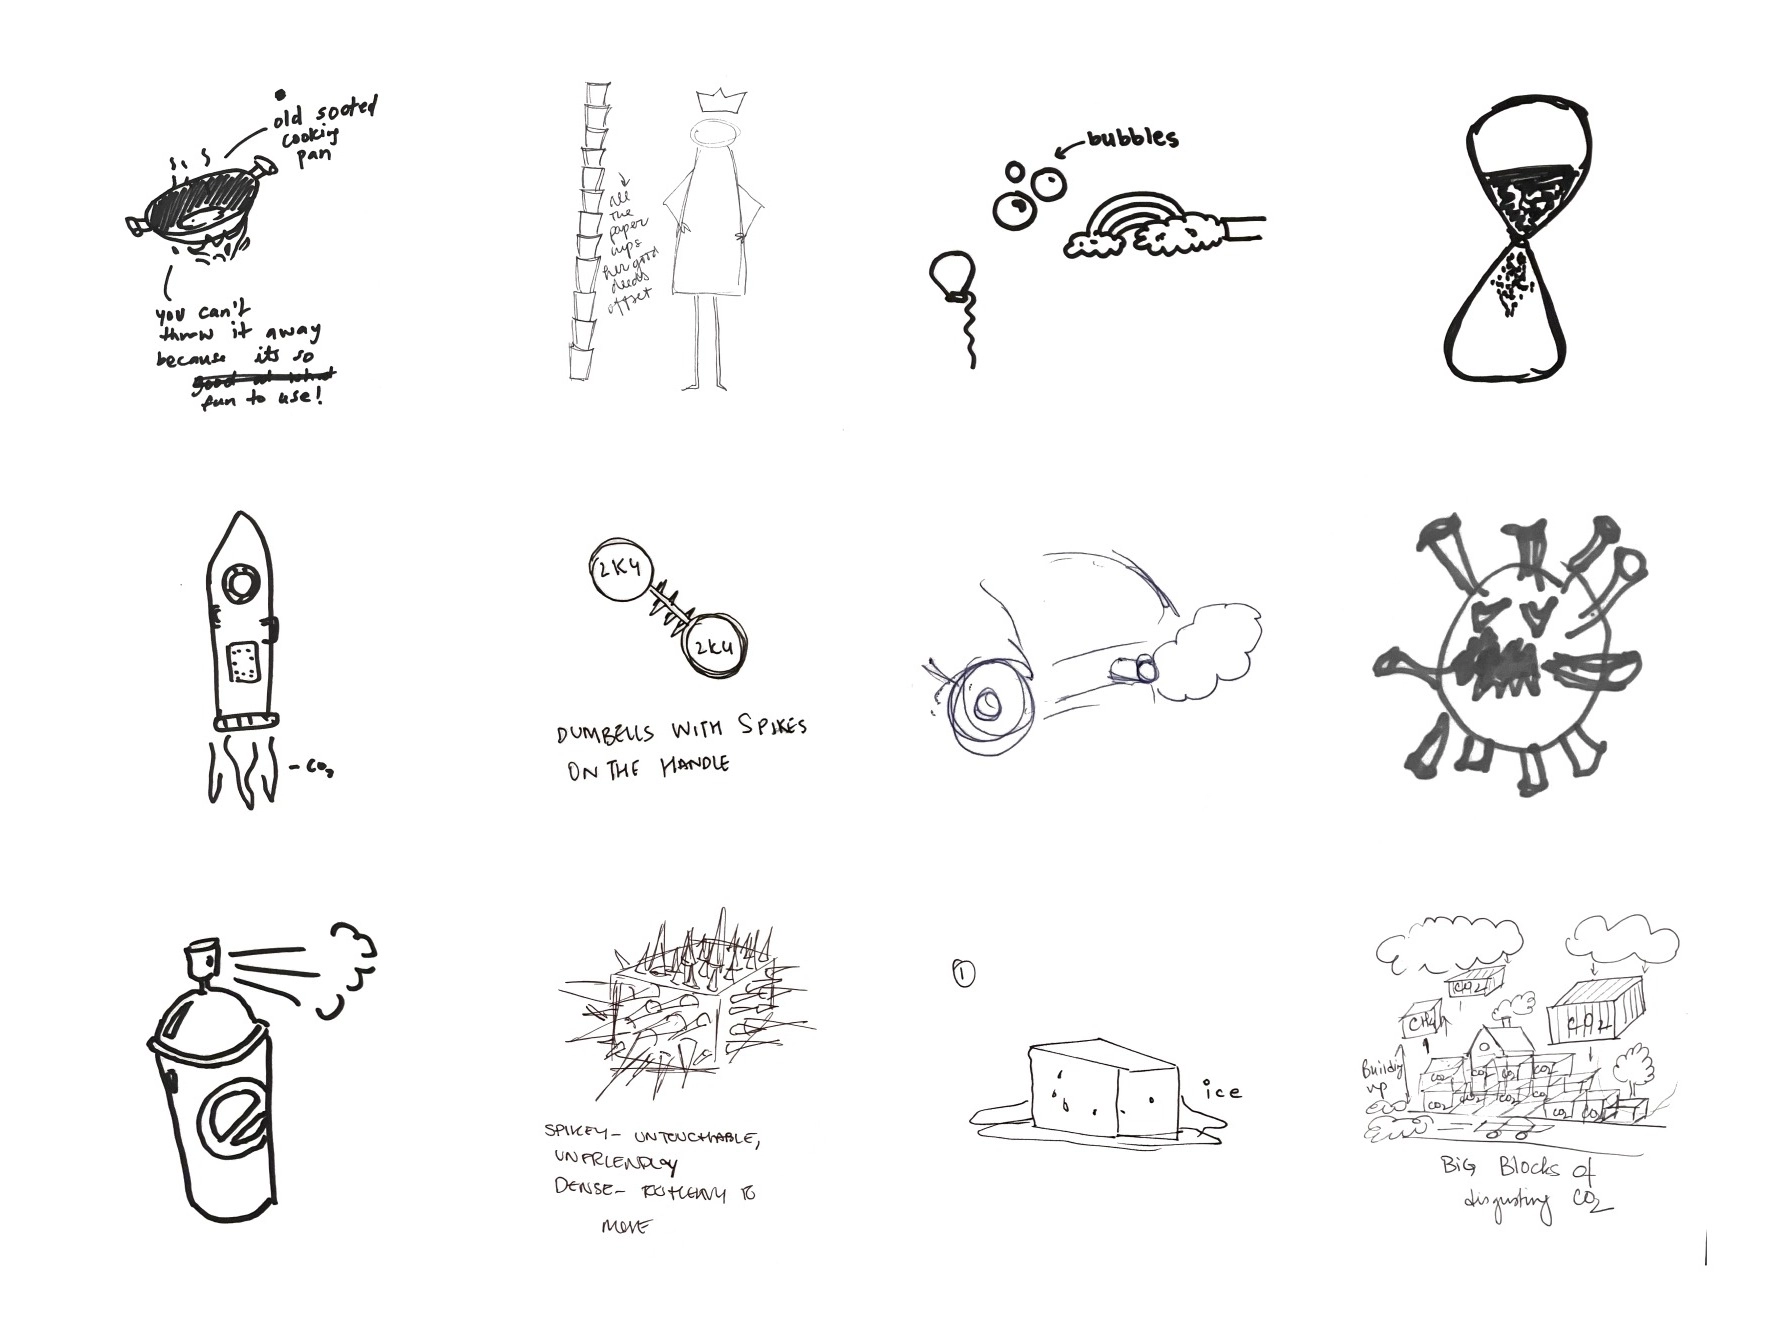 old sooted
cooking
pan
you can't
throw it away
because its so
fun to use!
all
the
paper
cups
her good
deeds
offset
bubbles
- CO2
2KG
2KG
DUMBELLS WITH SPIKES
ON THE HANDLE
SPIKEY - UNTOUCHABLE,
UNFRIENDLY
DENSE - TOO HEAVY TO
MOVE
1
ice
CO2
CH4
CO2
Building
up
CO2
CO2
CO2
CO2
CO2
CO2
CO2
CO2
CO2
BIG Blocks of
disgusting CO2